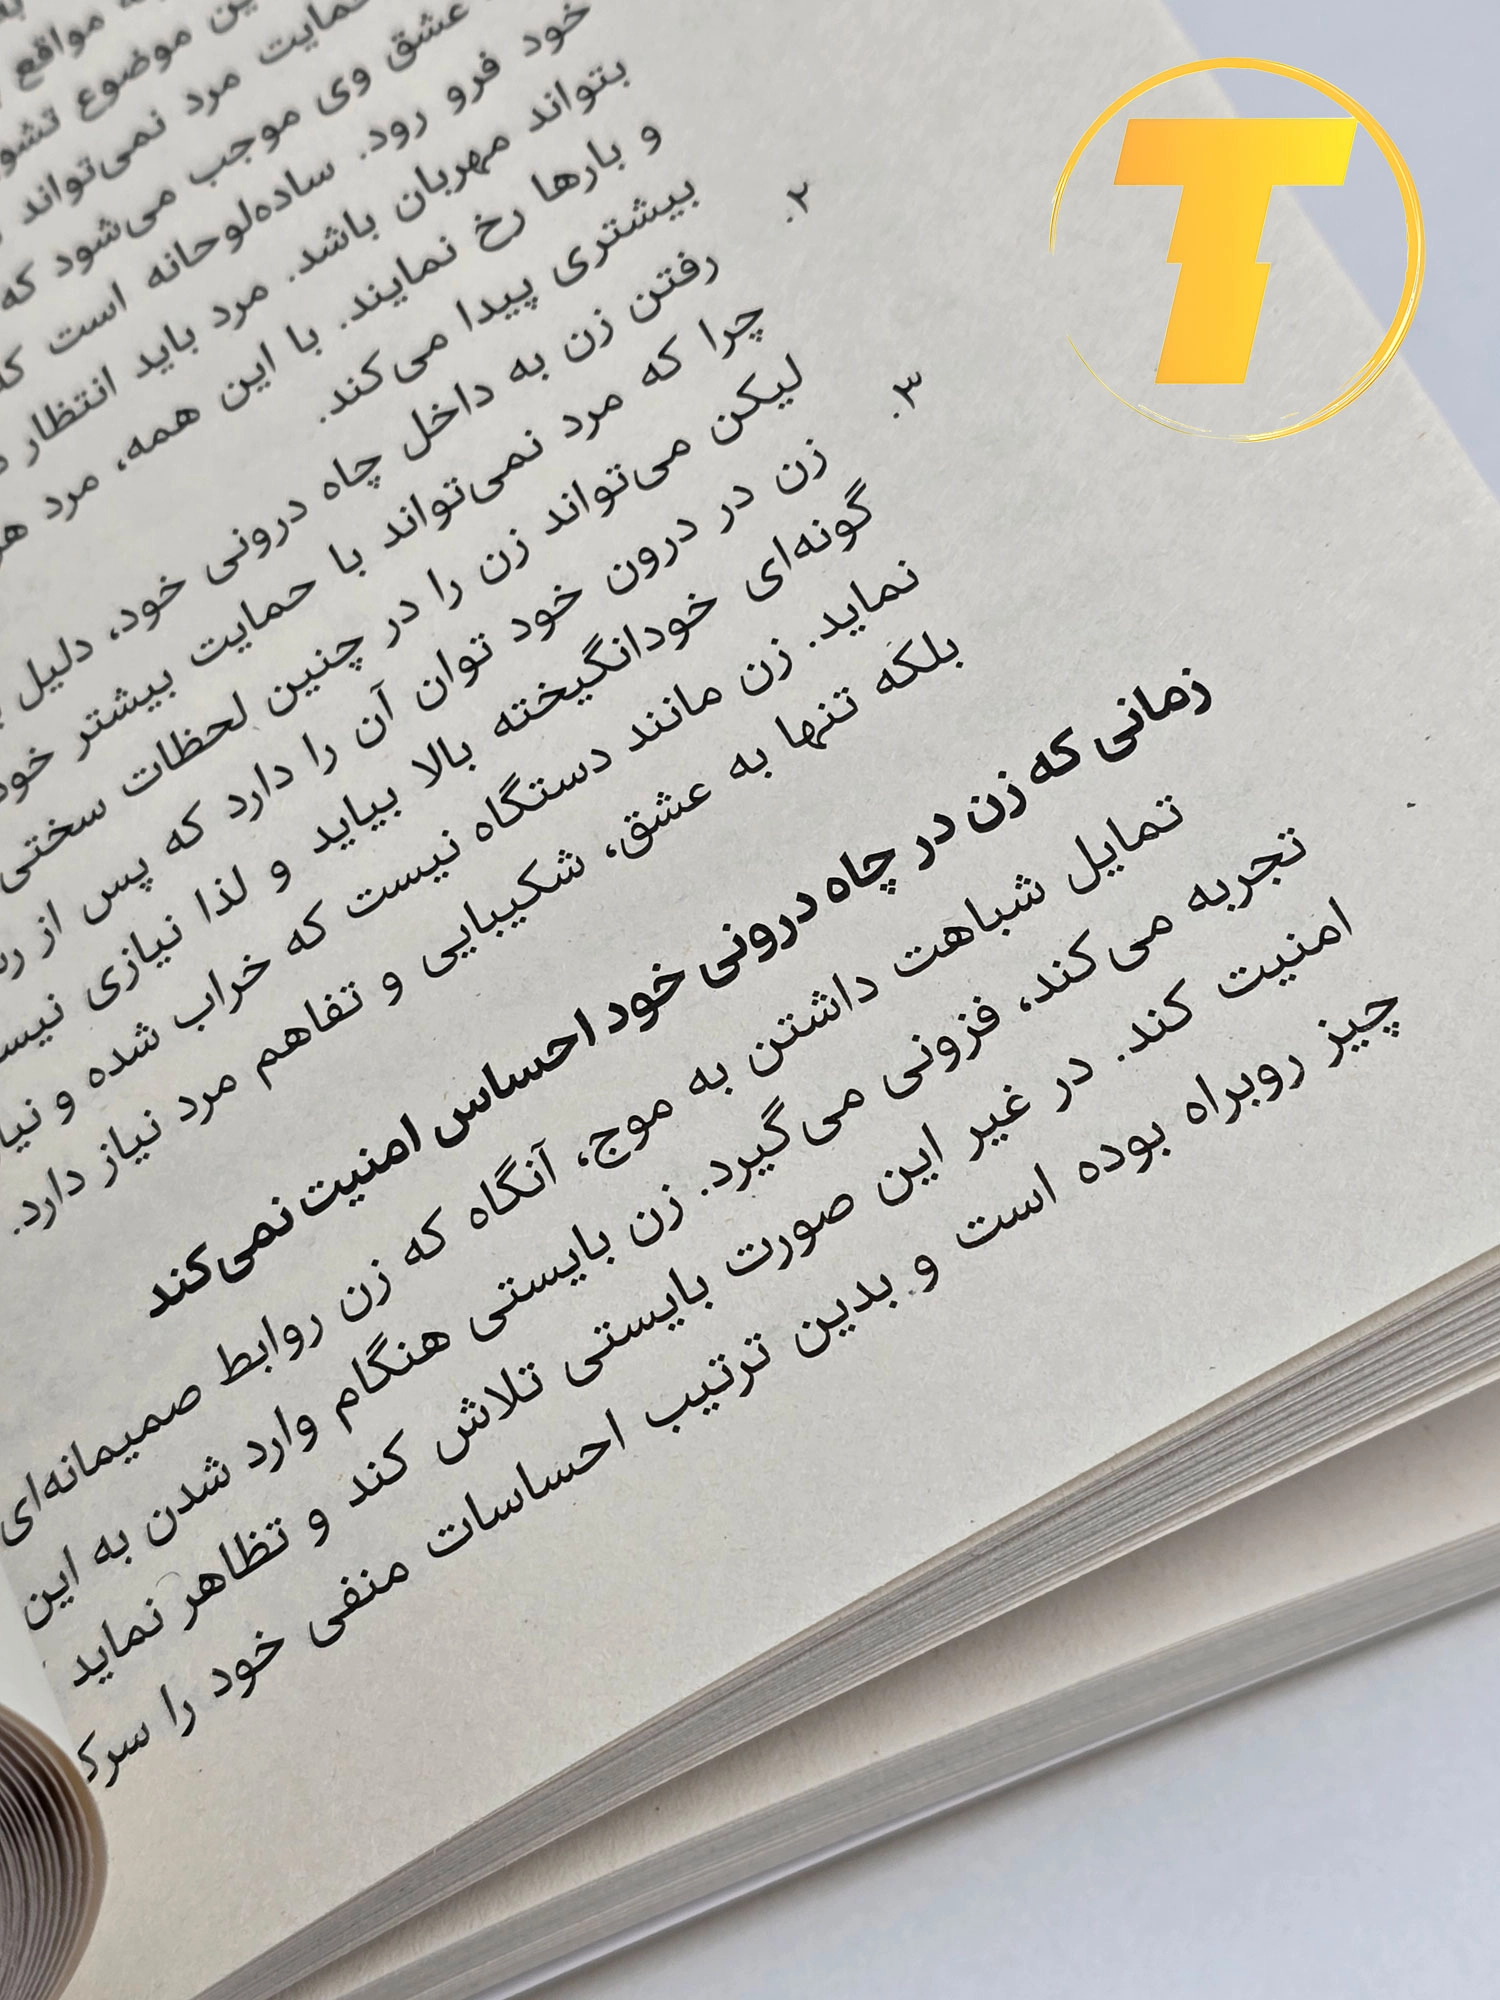 مواقع
موضوع
حمایت مرد نمی‌تواند
عشق وی موجب می‌شود که
خود فرو رود. ساده‌لوحانه است که
بتواند مهربان باشد. مرد باید انتظار
و بارها رخ نمایند. با این همه، مرد
بیشتری پیدا می‌کند.
۲. رفتن زن به داخل چاه درونی خود، دلیل
چرا که مرد نمی‌تواند با حمایت بیشتر خود
لیکن می‌تواند زن را در چنین لحظات سختی
۳. زن در درون خود توان آن را دارد که پس از
گونه‌ای خودانگیخته بالا بیاید و لذا نیازی
نماید. زن مانند دستگاه نیست که خراب شده و
بلکه تنها به عشق، شکیبایی و تفاهم مرد نیاز دارد.
زمانی که زن در چاه درونی خود احساس امنیت نمی‌کند
تمایل شباهت داشتن به موج، آنگاه که زن روابط صمیمانه‌ای
تجربه می‌کند، فزونی می‌گیرد. زن بایستی هنگام وارد شدن به این
امنیت کند. در غیر این صورت بایستی تلاش کند و تظاهر نماید
چیز روبراه بوده است و بدین ترتیب احساسات منفی خود را